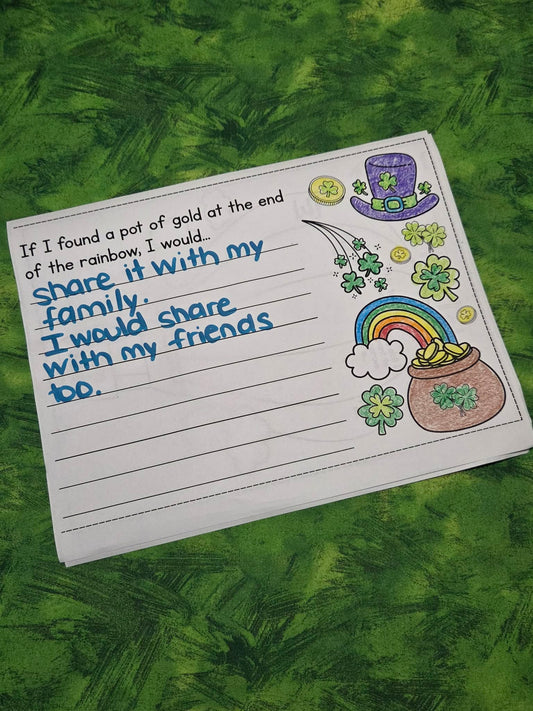 If I found a pot of gold at the end
of the rainbow, I would...
share it with my
family.
I would share
with my friends
too.